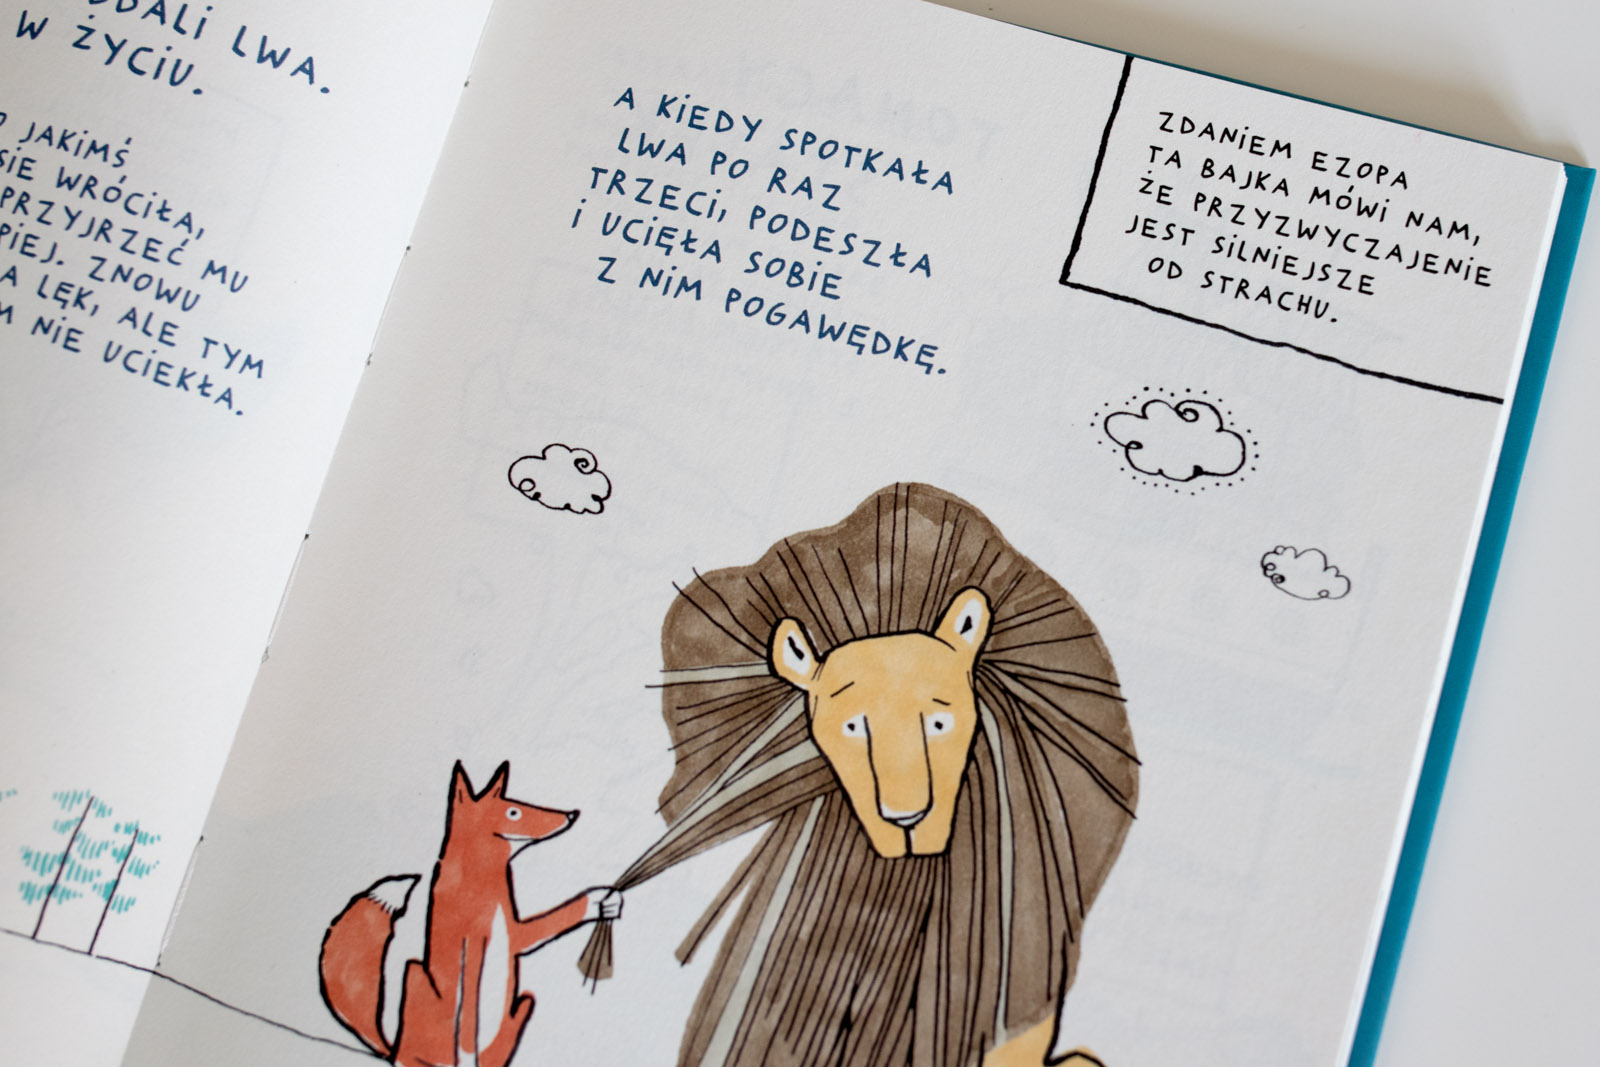 LWA.
W ŻYCIU.
JAKIMŚ
WRÓCIŁA,
PRZYJRZEĆ MU
ZNOWU
LĘK, ALE TYM
NIE UCIEKŁA.
A KIEDY SPOTKAŁA
LWA PO RAZ
TRZECI, PODESZŁA
I UCIĘŁA SOBIE
Z NIM POGAWĘDKĘ.
ZDANIEM EZOPA
TA BAJKA MÓWI NAM,
ŻE PRZYZWYCZAJENIE
JEST SILNIEJSZE
OD STRACHU.